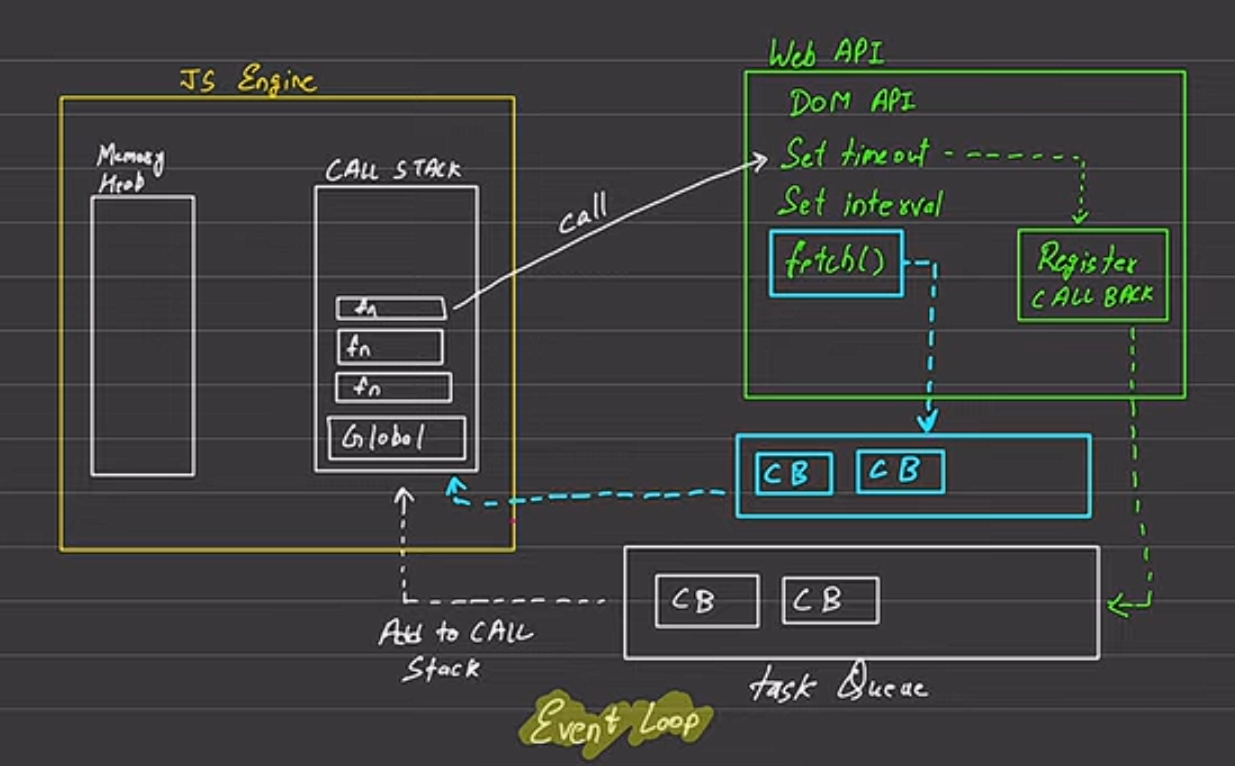 JS Engine
Memory
Heab
CALL STACK
fn
fn
fn
Global
call
Web API
DOM API
Set timeout
Set interval
fetch()
Register
CALL BACK
CB
CB
CB
CB
Add to CALL
Stack
task Queue
Event Loop